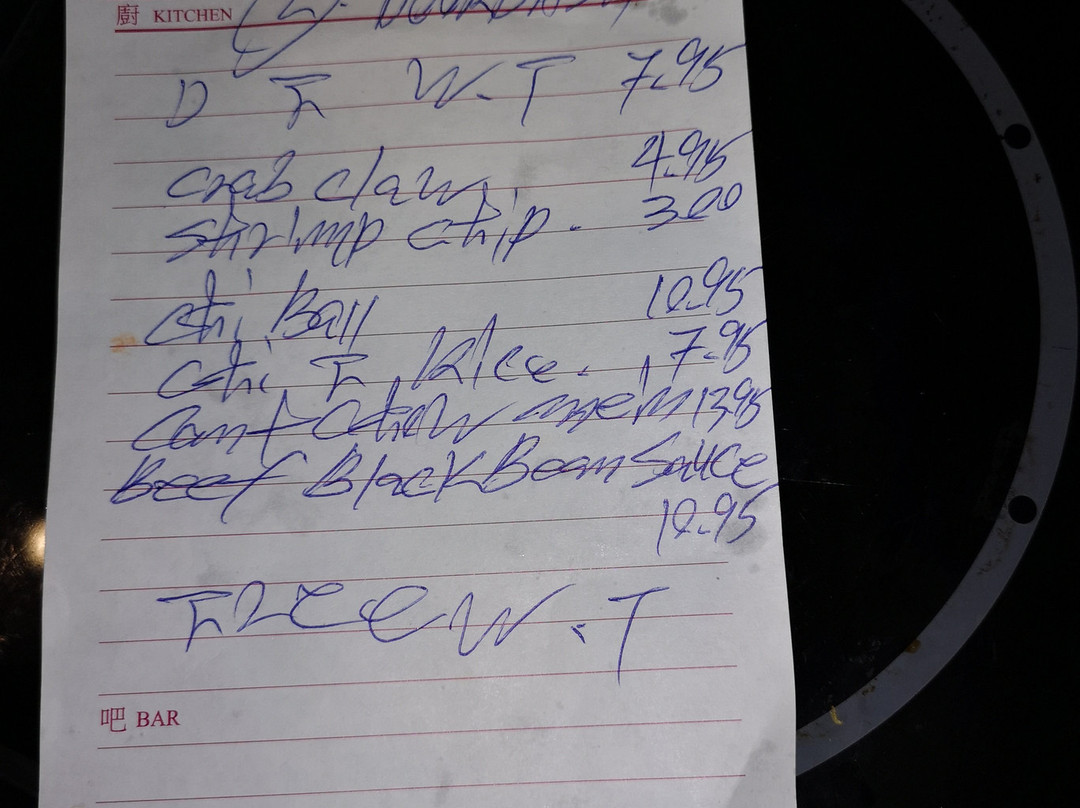 廚 KITCHEN
D F W.T 7.95
crab claw 4.95
shrimp chip. 3.00
chi. Ball 10.95
chi F Rice. 7.95
Cant chow mein 13.95
Beef Black Bean Sauce
10.95
Free W.T
吧 BAR